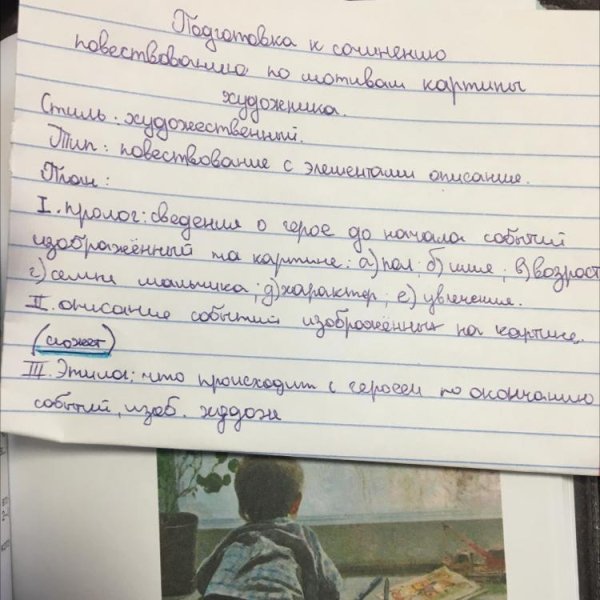 Подготовка к сочинению
повествованию по мотивам картины
художника.
Стиль: художественный.
Тип: повествование с элементами описание.
План:
I. пролог: сведения о герое до начала событий
изображённый на картине: а) пол; б) имя; в) возраст
г) семья мальчика; д) характер; е) увлечения.
II. описание событий изображённых на картине.
(сюжет)
III. Эпилог; что происходит с героем по окончанию
событий, изоб. худож